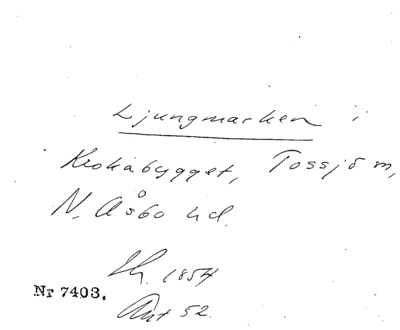 Ljungmarken i
Krokabygget, Tossjö m,
N. Åsbo hd.
Lh. 1854
Nr 7403.
Ant 52.